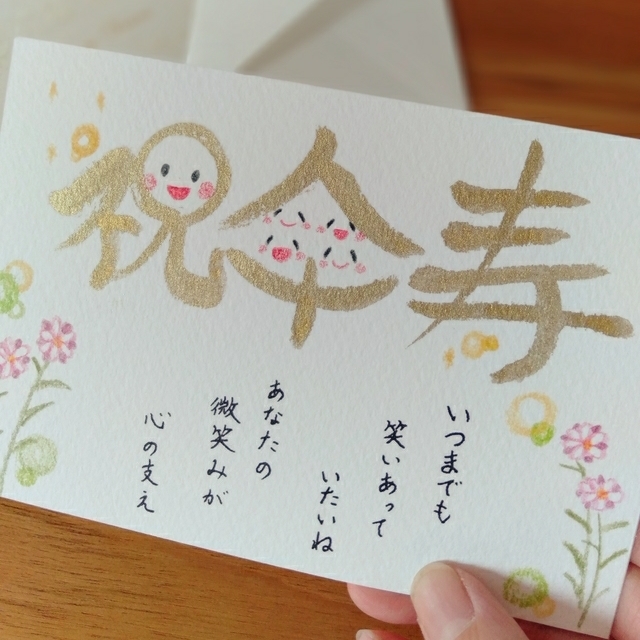 祝傘寿
いつまでも
笑いあって
いたいね
あなたの
微笑みが
心の支え